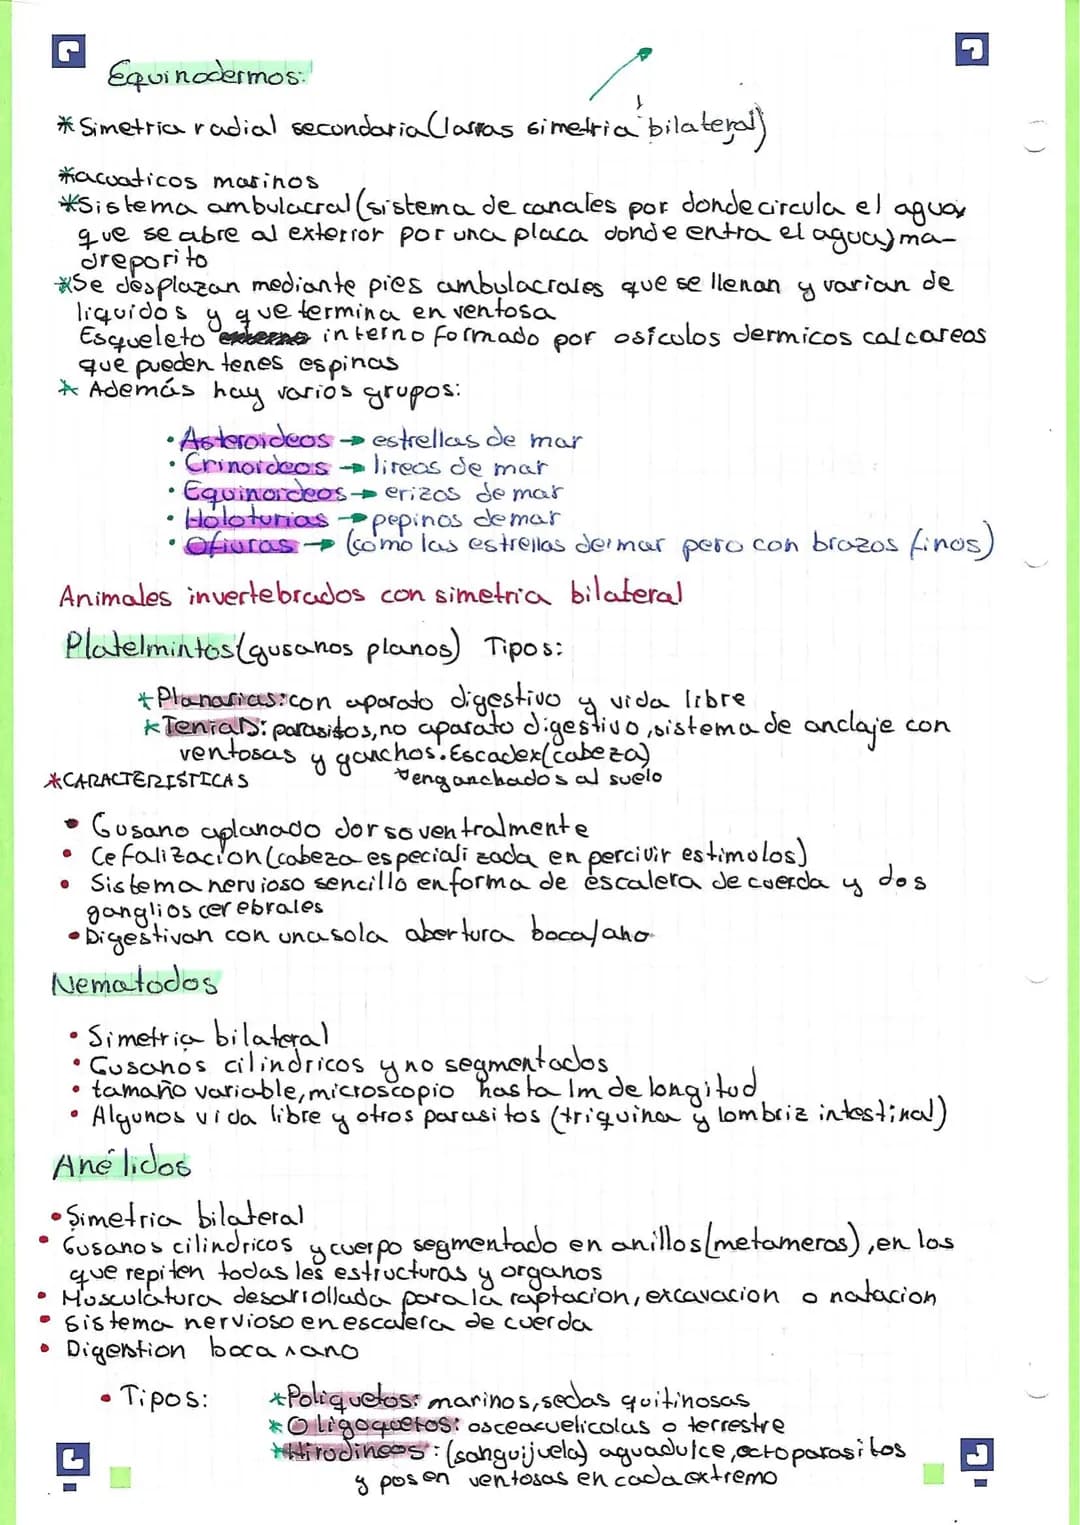 Equinodermos:
* Simetria radial secondaria (larvas simetria bilateral)
*acuaticos marinos
*Sistema ambulacral (sistema de canales por donde circula el agua y
que se abre al exterior por una placa donde entra el agua) ma-
dreporito
*Se desplazan mediante pies ambulacrales que se llenan y varian de
liquidos y que termina en ventosa
Esqueleto interno formado por osículos dermicos calcareos
que pueden tenes espinas
* Además hay varios grupos:
• Asteroideos → estrellas de mar
• Crinoideos → lireas de mar
• Equinoideos → erizos de mar
• Holoturias → pepinos de mar
• Ofiuras → (como las estrellas de mar pero con brazos finos)
Animales invertebrados con simetria bilateral
Platelmintos (gusanos planos) Tipos:
* Planarias: con aparato digestivo y vida libre
* Tenias: parasitos, no aparato digestivo, sistema de anclaje con
ventosas y ganchos. Escadex (cabeza)
enganchados al suelo
*CARACTERÍSTICAS
• Gusano aplanado dorsoventralmente
• Cefalización (cabeza especializada en percivir estimolos)
• Sistema nervioso sencillo en forma de escalera de cuerda y dos
ganglios cerebrales
• Digestivan con una sola abertura boca/ano
Nematodos
• Simetria bilateral
• Gusanos cilindricos y no segmentados
• tamaño variable, microscopio hasta 1m de longitud
• Algunos vida libre y otros parasitos (triquina y lombriz intestinal)
Anélidos
• Simetria bilateral
• Gusanos cilindricos y cuerpo segmentado en anillos (metameros), en los
que repiten todas les estructuras y organos
• Musculatura desarrollada para la raptacion, excavacion o natacion
• sistema nervioso en escalera de cuerda
• Digestion boca ano
• Tipos:
* Poliquetos: marinos, sedas quitinosas
* Oligoquetos: osceacuelicolas o terrestre
* Hirodineos: (sanguijuela) aguadulce, octoparasitos
y posen ventosas en cada extremo